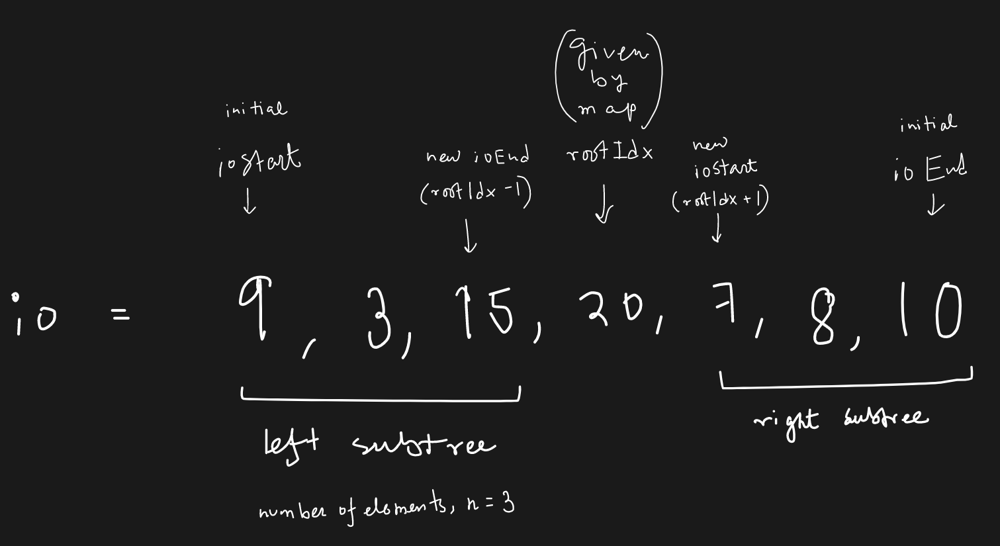 (given
by
map)
initial
ioStart
new ioEnd
(rootIdx -1)
rootIdx
new
ioStart
(rootIdx+1)
initial
io End
io = 9, 3, 15, 20, 7, 8, 10
left subtree
right subtree
number of elements, n = 3